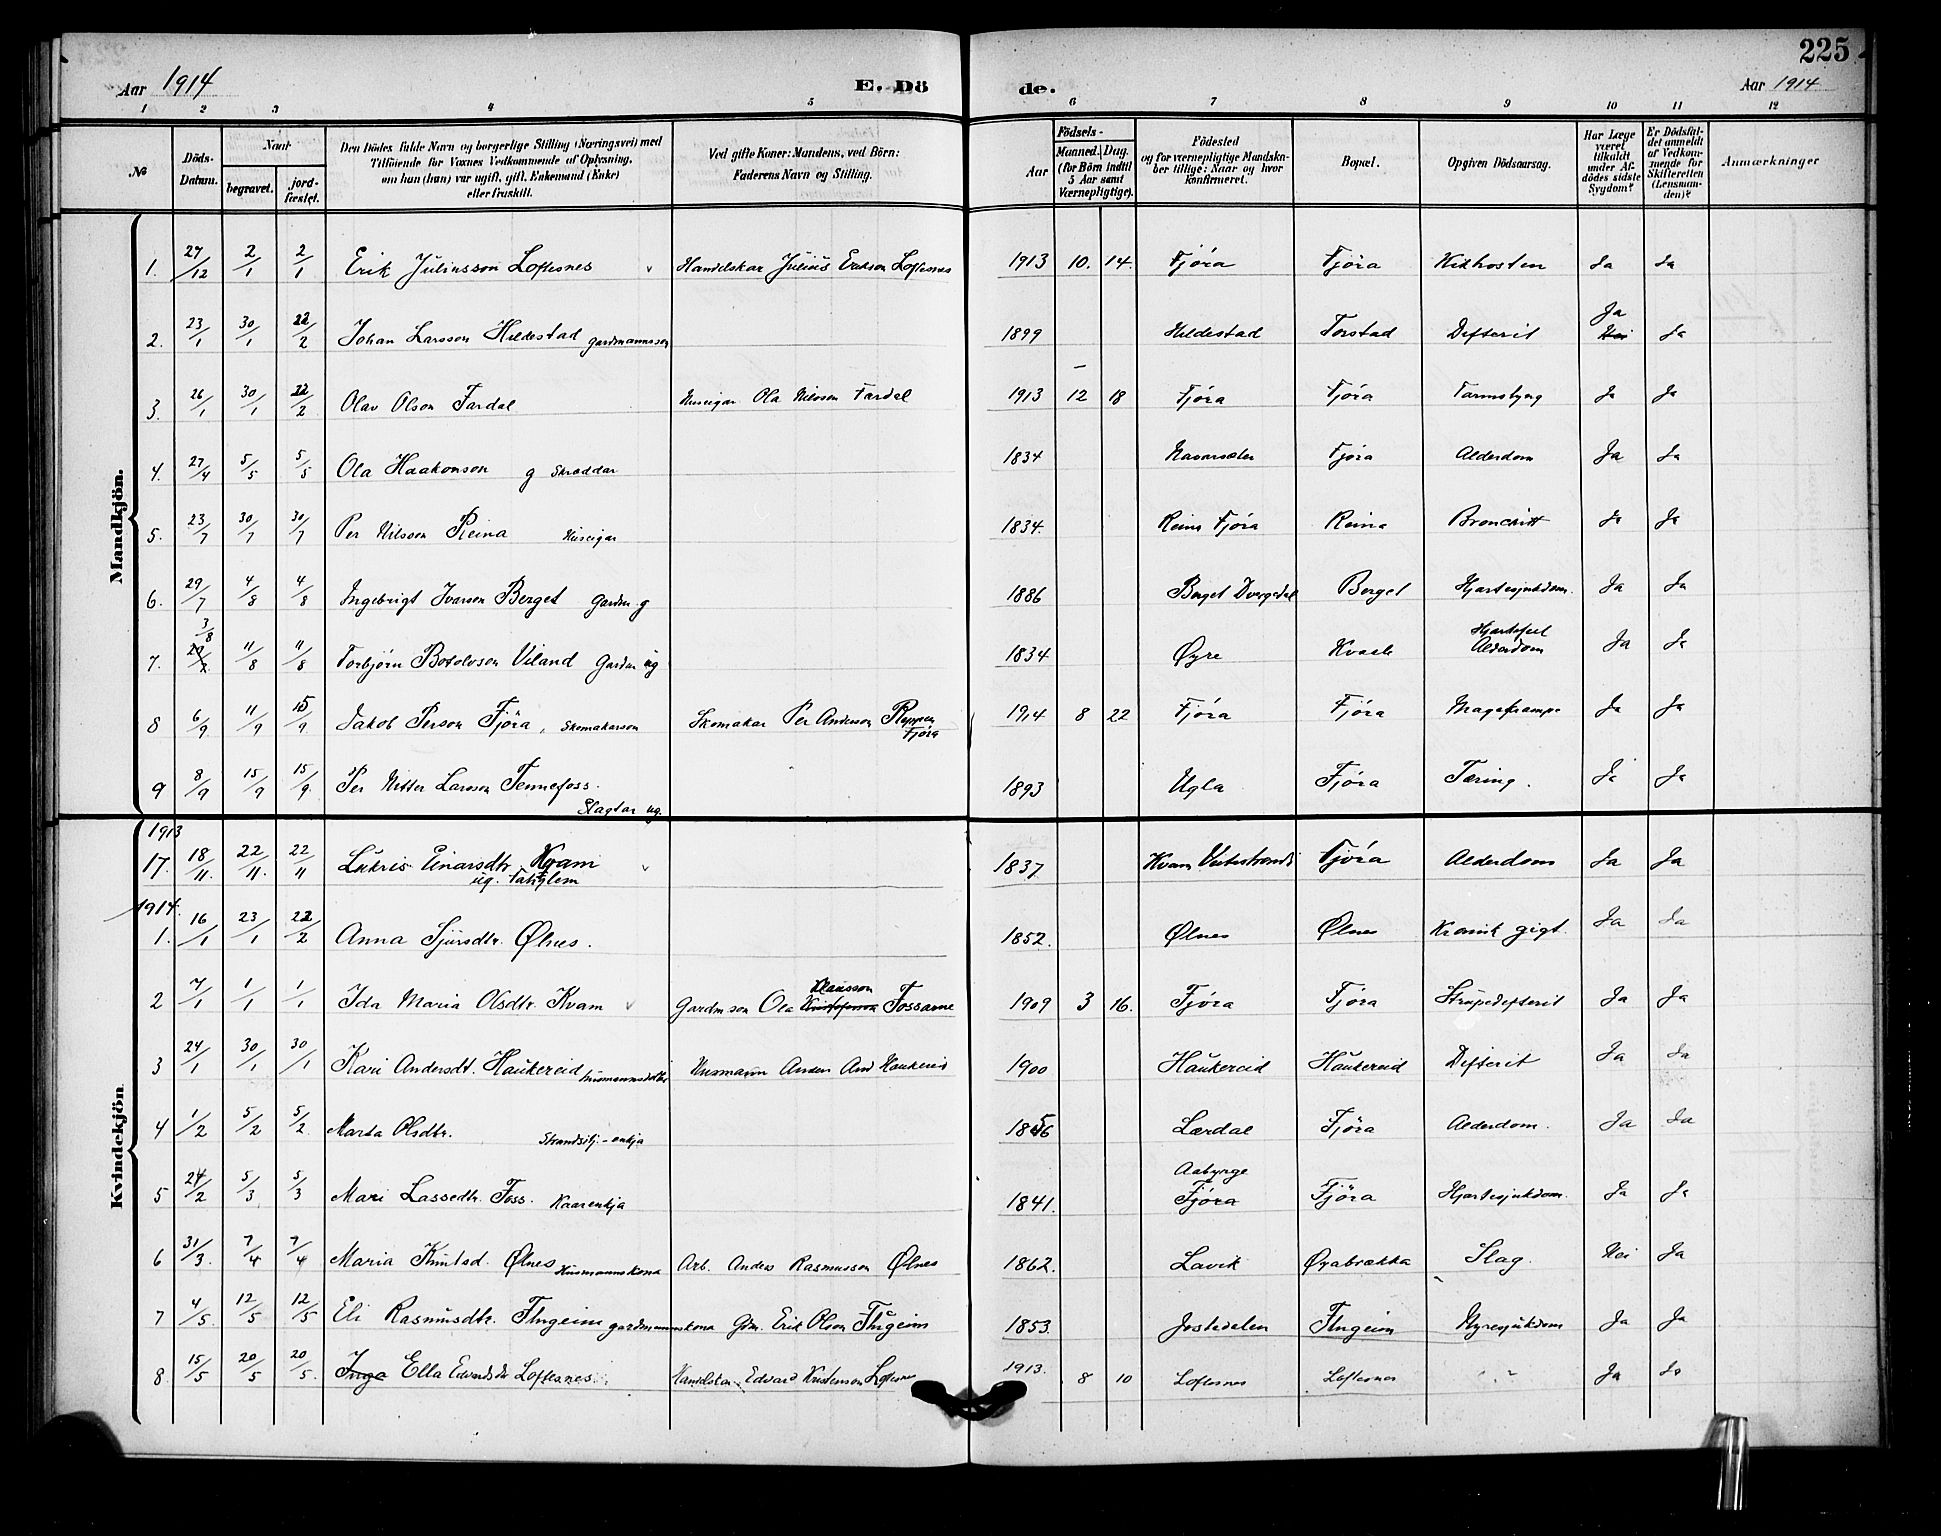 225
Aar 1914 E. Dö de. Aar 1914
1 2 3 4 5 6 7 8 9 10 11 12
№
Döds-Datum.
Naar
begravet.
jord-fæstet.
Den Dödes fulde Navn og borgerlige Stilling (Næringsvei) med
Tilföiende for Voxnes Vedkommende af Oplysning,
om han (hun) var ugift, gift, Enkemand (Enke)
eller fraskilt.
Ved gifte Koner: Mandens, ved Börn:
Faderens Navn og Stilling.
Födsels-
Aar
Maaned. Dag.
(for Börn indtil
5 Aar samt
Værnepligtige).
Födested
og for værnepligtige Mandska-
ber tillige: Naar og hvor
konfirmeret.
Bopæl.
Opgiven Dödsaarsag.
Har Læge
været
tilkaldt
under Af-
dödes sidste
Sygdom?
Er Dödsfal-
det anmeldt
af Vedkom-
mende for
Skifteretten
(Lensman-
den)?
Anmærkninger
Mandkjön.
1. 27/12 2/1 2/1 Erik Júliusson Loftesnes Handelskar Júliús Erikson Loftesnes 1913 10. 14. Fjöra Fjöra Kikhosten Ja Ja
2. 23/1 30/1 22/2 Johan Larsson Hildestad gardmannsson 1899 Hildestad Torstad Difterit Ja Nei Ja
3. 26/1 30/1 22/2 Olav Olson Fardal Huseigar Ola Nilsson Fardal 1913 12 18 Fjöra Fjöra Tarmslyng Ja Ja
4. 27/4 5/5 5/5 Ola Haakonson g Skreddar 1834 Navarsæter Fjöra Alderdom Ja Ja
5. 23/7 30/7 30/7 Per Nilsson Reina Huseigar 1834. Reina Fjöra Reina Bronchitt Ja Ja
6. 29/7 4/8 4/8 Ingebrigt Ivarson Berget Gardm g 1886 Berget Dvergedal Berget Hjartesjukdom. Ja Ja
7. 3/8 11/8 11/8 Torbjörn Botolvson Viland Gardm ug 1834 Øyre Kvaale Hjartefeil Alderdom Ja Ja
8 6/9 11/9 15/9. Jakob Person Fjöra, Skomakarson Skomakar Per Anderson Reppen Fjöra 1914 8 22 Fjöra Fjöra Magekrampe Ja Ja
9 8/9 15/9 15/9. Per Nitter Larsson Tennefoss. Slagtar ug. 1893 Ugla Fjöra Tæring. Ja Ja
Kvindekjön
1913
17. 18/11. 22/11. 22/11 Lukris Einarsdtr. Kvam ug. Fatiglem 1837 Kvam Vetestrandi Fjöra Alderdom Ja Ja
1914.
1. 16/1 23/1 22/2 Anna Sjúrsdtr. Ølnes. 1852. Ølnes Ølnes Kronisk gigt. Ja Ja
2 7/1 1/1 1/1 Ida Maria Olsdtr. Kvam Gardm.son Ola Klausson Kristoferson Fossanne 1909 3 16. Fjöra Fjöra Strupedifterit Ja Ja
3 24/1 30/1 30/1 Kari Andersdt. Haukereid husmannsdotter Husmann Anders And Haukereid 1900 Haukereid Haukereid Difterit Ja Ja
4 1/2 5/2 5/2. Marta Olsdtr. Strandsitj-enkja 1856 Lærdal Fjöra Alderdom. Ja Ja
5 24/2 5/3 5/3 Mari Lassedtr. Foss. Kaarenkja 1841. Aabyrge Fjöra Fjöra Hjartesjukdom. Ja Ja
6 31/3. 7/4 7/4 Maria Knutsd. Ølnes Husmannskona Arb. Anders Rasmusson Ølnes 1862. Lavik Øyabrækka Slag. Nei Ja
7 4/5. 12/5 12/5 Eli Rasmusdtr. Flugeim gardmannskona Gdm. Erik Olson Flugeim 1853. Jostedalen Flugeim Nyresjukdom Ja Ja
8 15/5 20/5 20/5. Inga Ella Edvardsdtr Loftesnes. Handelskar Edvard Kristenson Loftesnes 1913. 8 10 Loftesnes Loftesnes Ja Ja